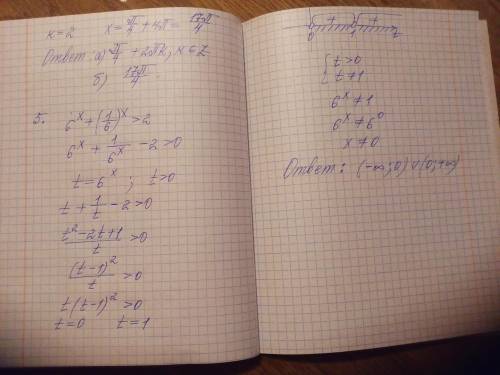 k=2 x = π/4 + 4π = 17π/4
Ответ: а) π/4 + 2πk, k ∈ Z
б) 17π/4
5. 6^x + (1/6)^x > 2
6^x + 1/6^x - 2 > 0
t = 6^x ; t > 0
t + 1/t - 2 > 0
(t^2 - 2t + 1)/t > 0
(t-1)^2/t > 0
t(t-1)^2 > 0
t=0 t=1
{ t > 0
{ t ≠ 1
6^x ≠ 1
6^x ≠ 6^0
x ≠ 0
Ответ: (-∞; 0) ∪ (0; +∞)